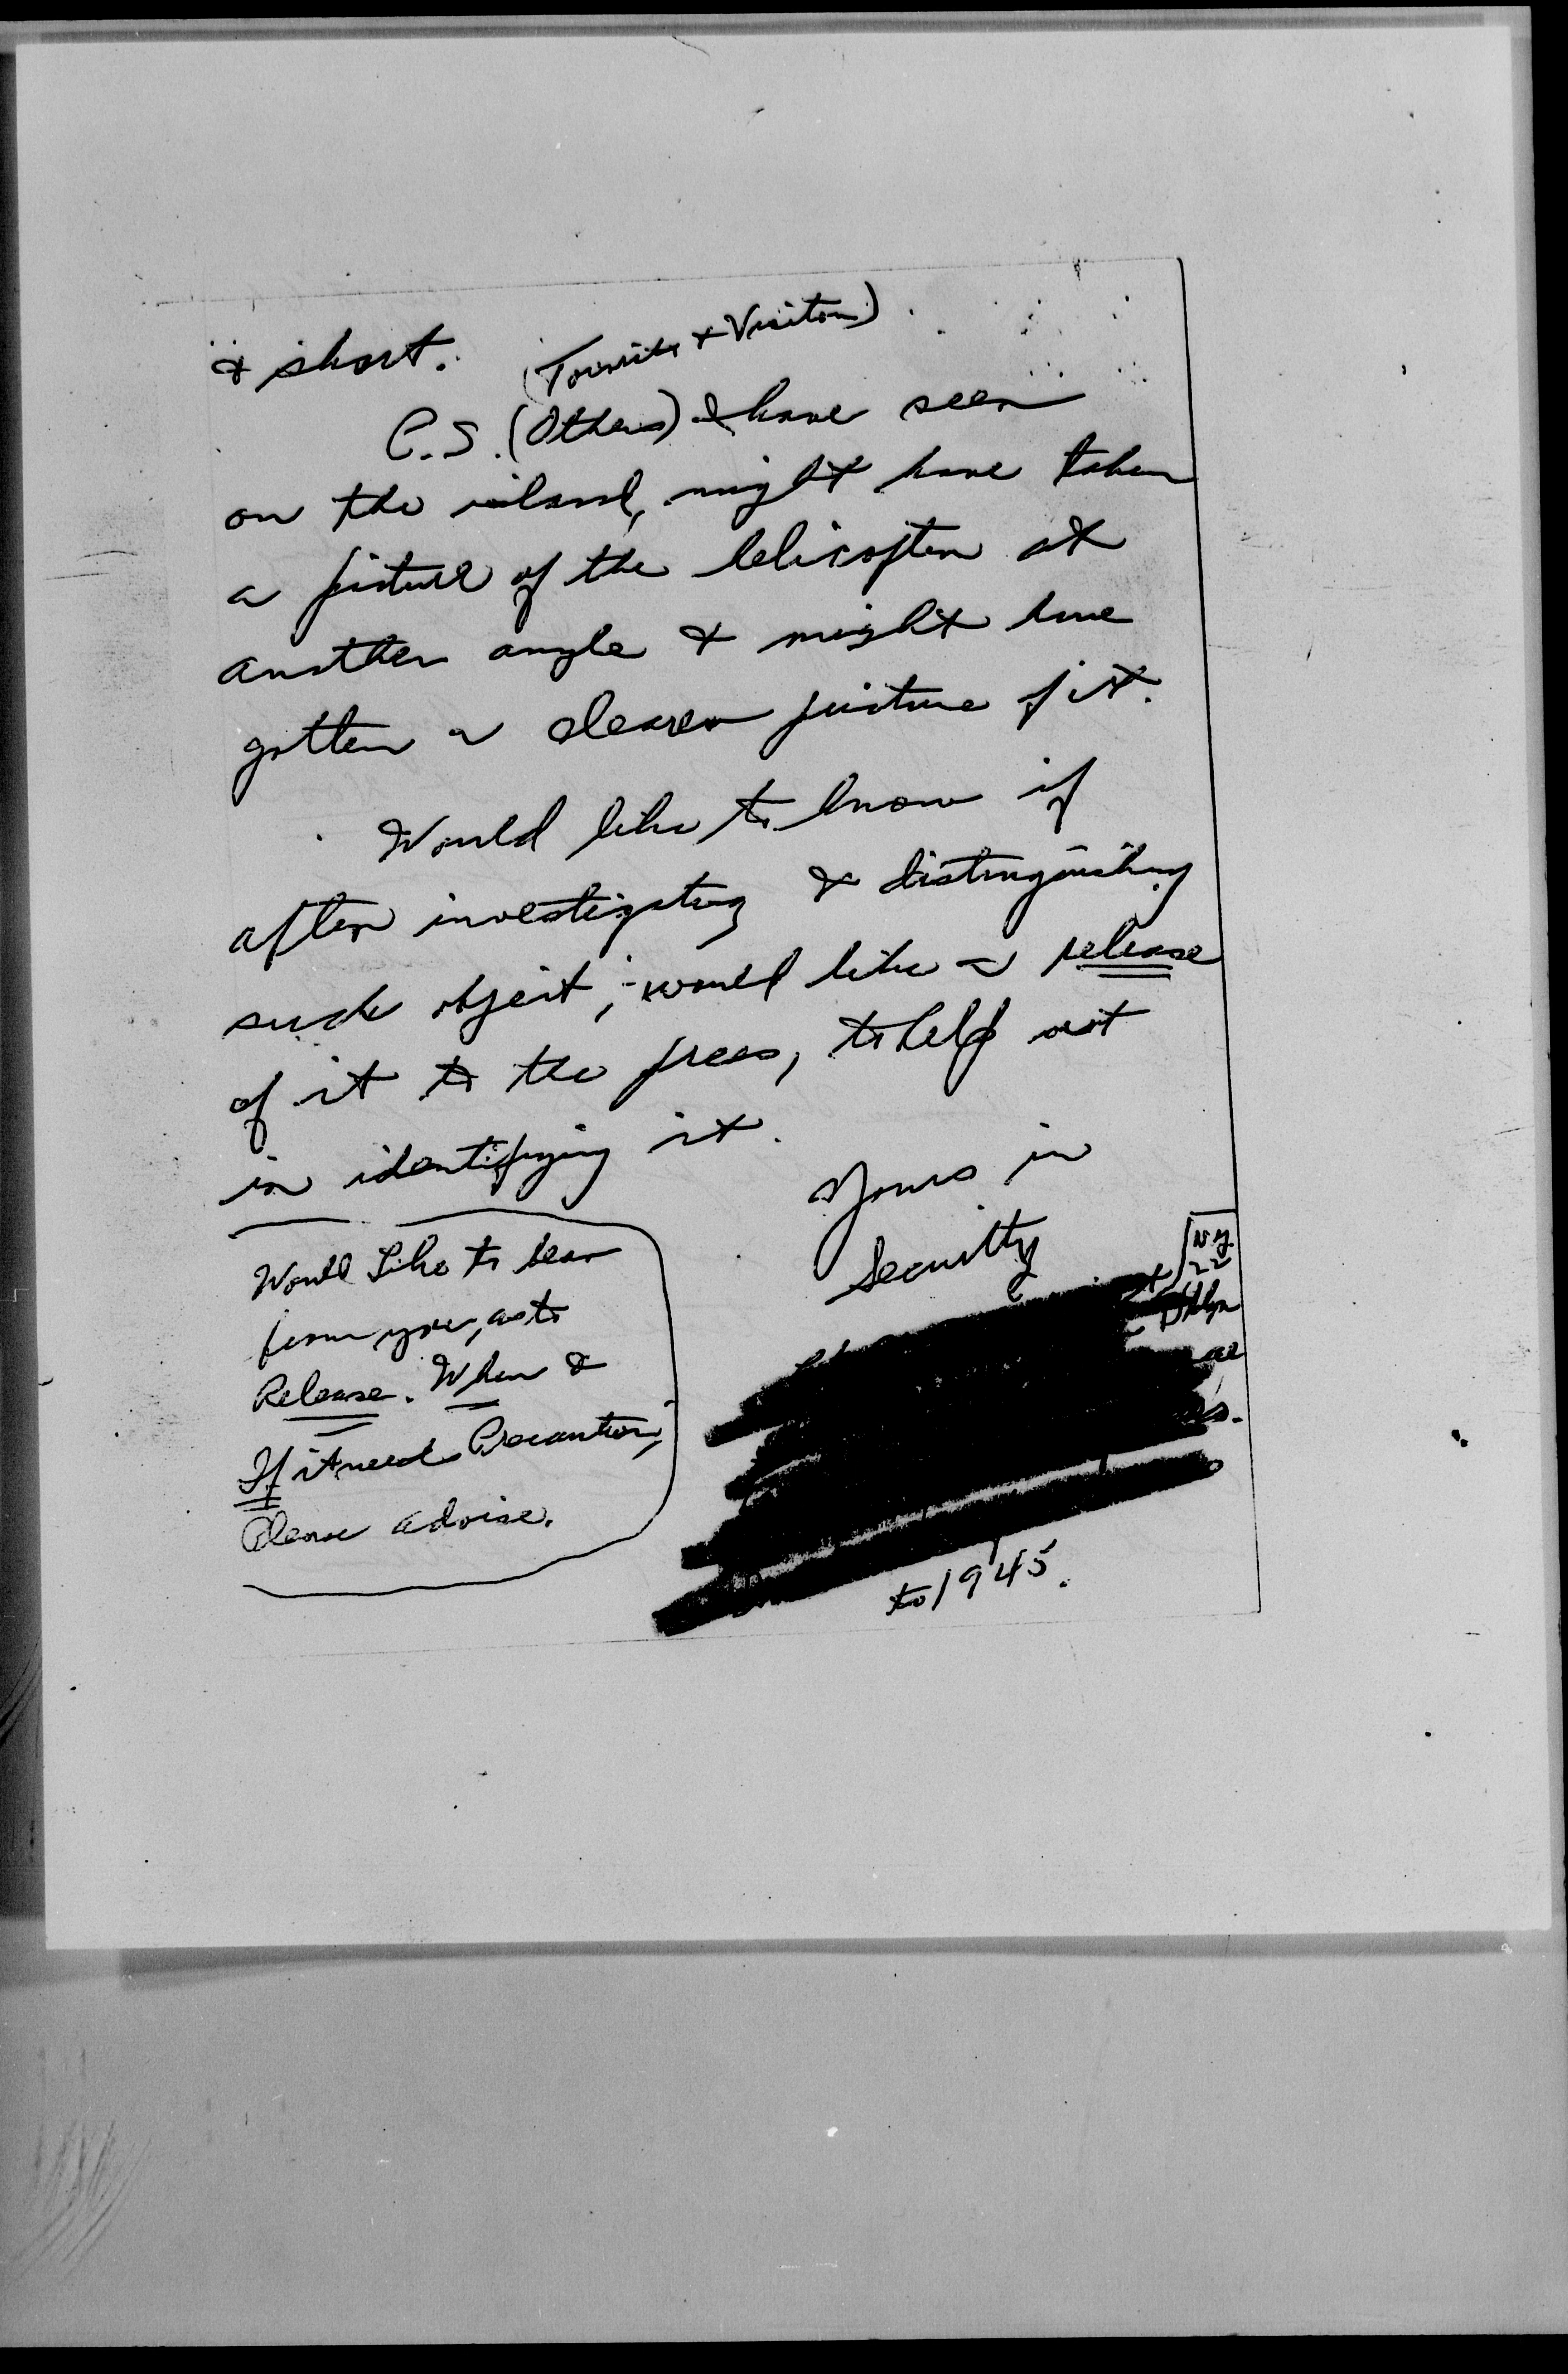 & short.
(Tourists & Visitors)
P.S. (Others) I have seen
on the island, might have taken
a picture of the helicopter at
another angle & might have
gotten a clearer picture of it.
Would like to know if
after investigating & distinguishing
such object, would like a release
of it to the press, to help out
in identifying it.
Yours in
Security
N.Y.
22
Bklyn
Would Like to hear
from you, as to
Release. When &
If it needs Precaution,
Please advise.
to 1945.